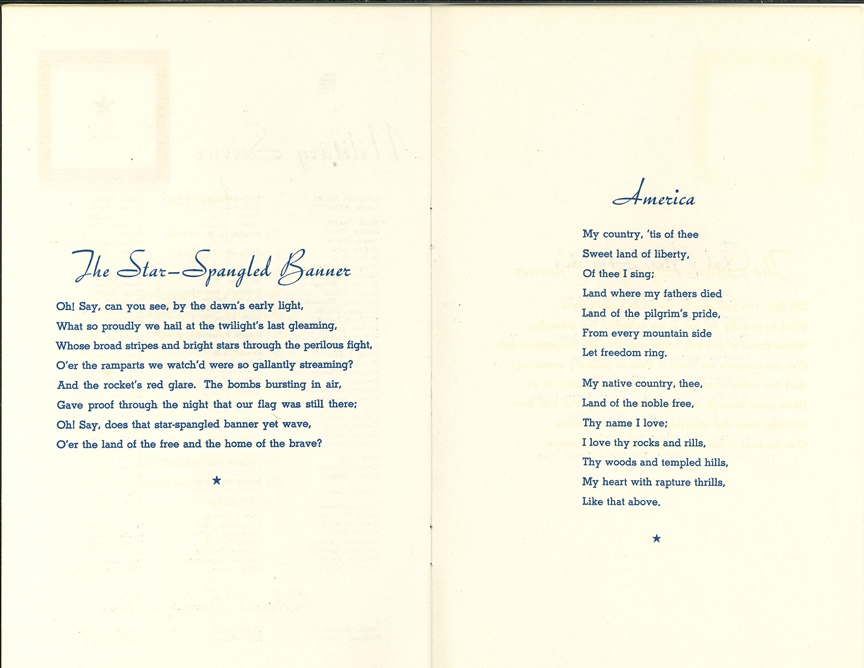 The Star-Spangled Banner
Oh! Say, can you see, by the dawn's early light,
What so proudly we hail at the twilight's last gleaming,
Whose broad stripes and bright stars through the perilous fight,
O'er the ramparts we watch'd were so gallantly streaming?
And the rocket's red glare. The bombs bursting in air,
Gave proof through the night that our flag was still there;
Oh! Say, does that star-spangled banner yet wave,
O'er the land of the free and the home of the brave?
America
My country, 'tis of thee
Sweet land of liberty,
Of thee I sing;
Land where my fathers died
Land of the pilgrim's pride,
From every mountain side
Let freedom ring.
My native country, thee,
Land of the noble free,
Thy name I love;
I love thy rocks and rills,
Thy woods and templed hills,
My heart with rapture thrills,
Like that above.